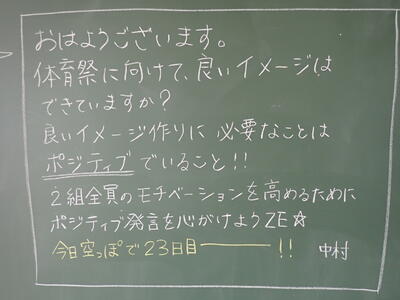 おはようございます。
体育祭に向けて、良いイメージは
できていますか？
良いイメージ作りに 必要なことは
ポジティブでいること!!
2組全員のモチベーションを高めるために
ポジティブ発言を心がけようZE☆
今日空っぽで23日目―――!! 中村